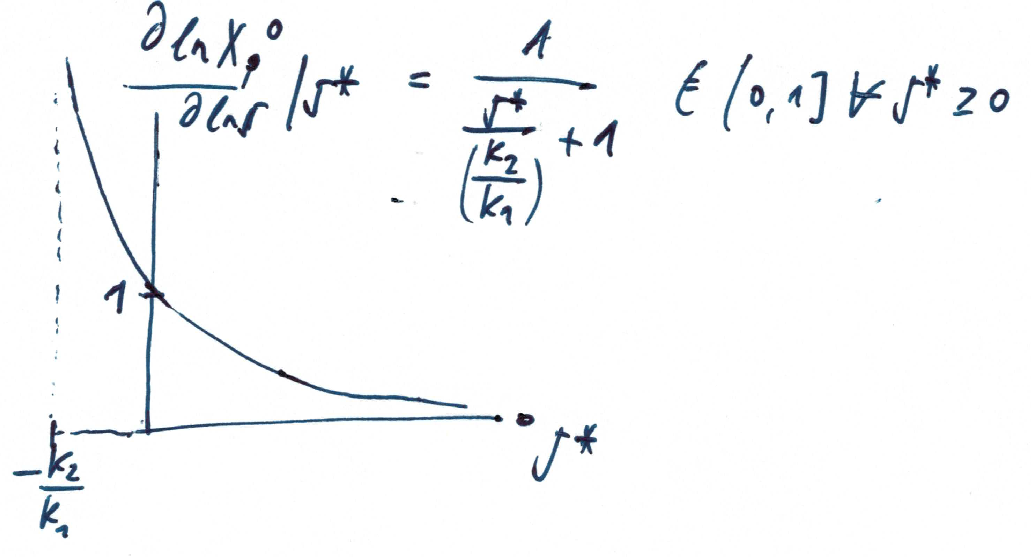 ∂ ln X_p^0 / ∂ ln S | S* = 1 / (S* / (k₂/k₁) + 1) ∈ (0,1] ∀ S* ≥ 0
1
S*
-k₂/k₁